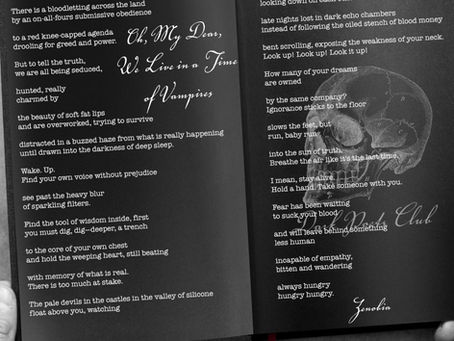 There is a bloodletting across the land
by an on-all-fours submissive obedience
to a red knee-capped agenda
drooling for greed and power.
Oh, My Dear,
We Live in a Time
of Vampires
But to tell the truth,
we are all being seduced,
hunted, really
charmed by
the beauty of soft fat lips
and are overworked, trying to survive
distracted in a buzzed haze from what is really happening
until drawn into the darkness of deep sleep.
Wake. Up.
Find your own voice without prejudice
see past the heavy blur
of sparkling filters.
Find the tool of wisdom inside, first
you must dig, dig–deeper, a trench
to the core of your own chest
and hold the weeping heart, still beating
with memory of what is real.
There is too much at stake.
The pale devils in the castles in the valley of silicone
float above you, watching
looking down on
late nights lost in dark echo chambers
instead of following the oiled stench of blood money
bent scrolling, exposing the weakness of your neck.
Look up! Look up! Look up!
How many of your dreams
are owned
by the same company?
Ignorance sticks to the floor
slows the feet, but
run, baby run
into the sun of truth.
Breathe the air like it's the last time.
I mean, stay alive.
Hold a hand. Take someone with you.
Fear has been waiting
to suck your blood
Dark Poets Club
and will leave behind something
less human
incapable of empathy,
bitten and wandering
always hungry
hungry hungry.
Zenobia